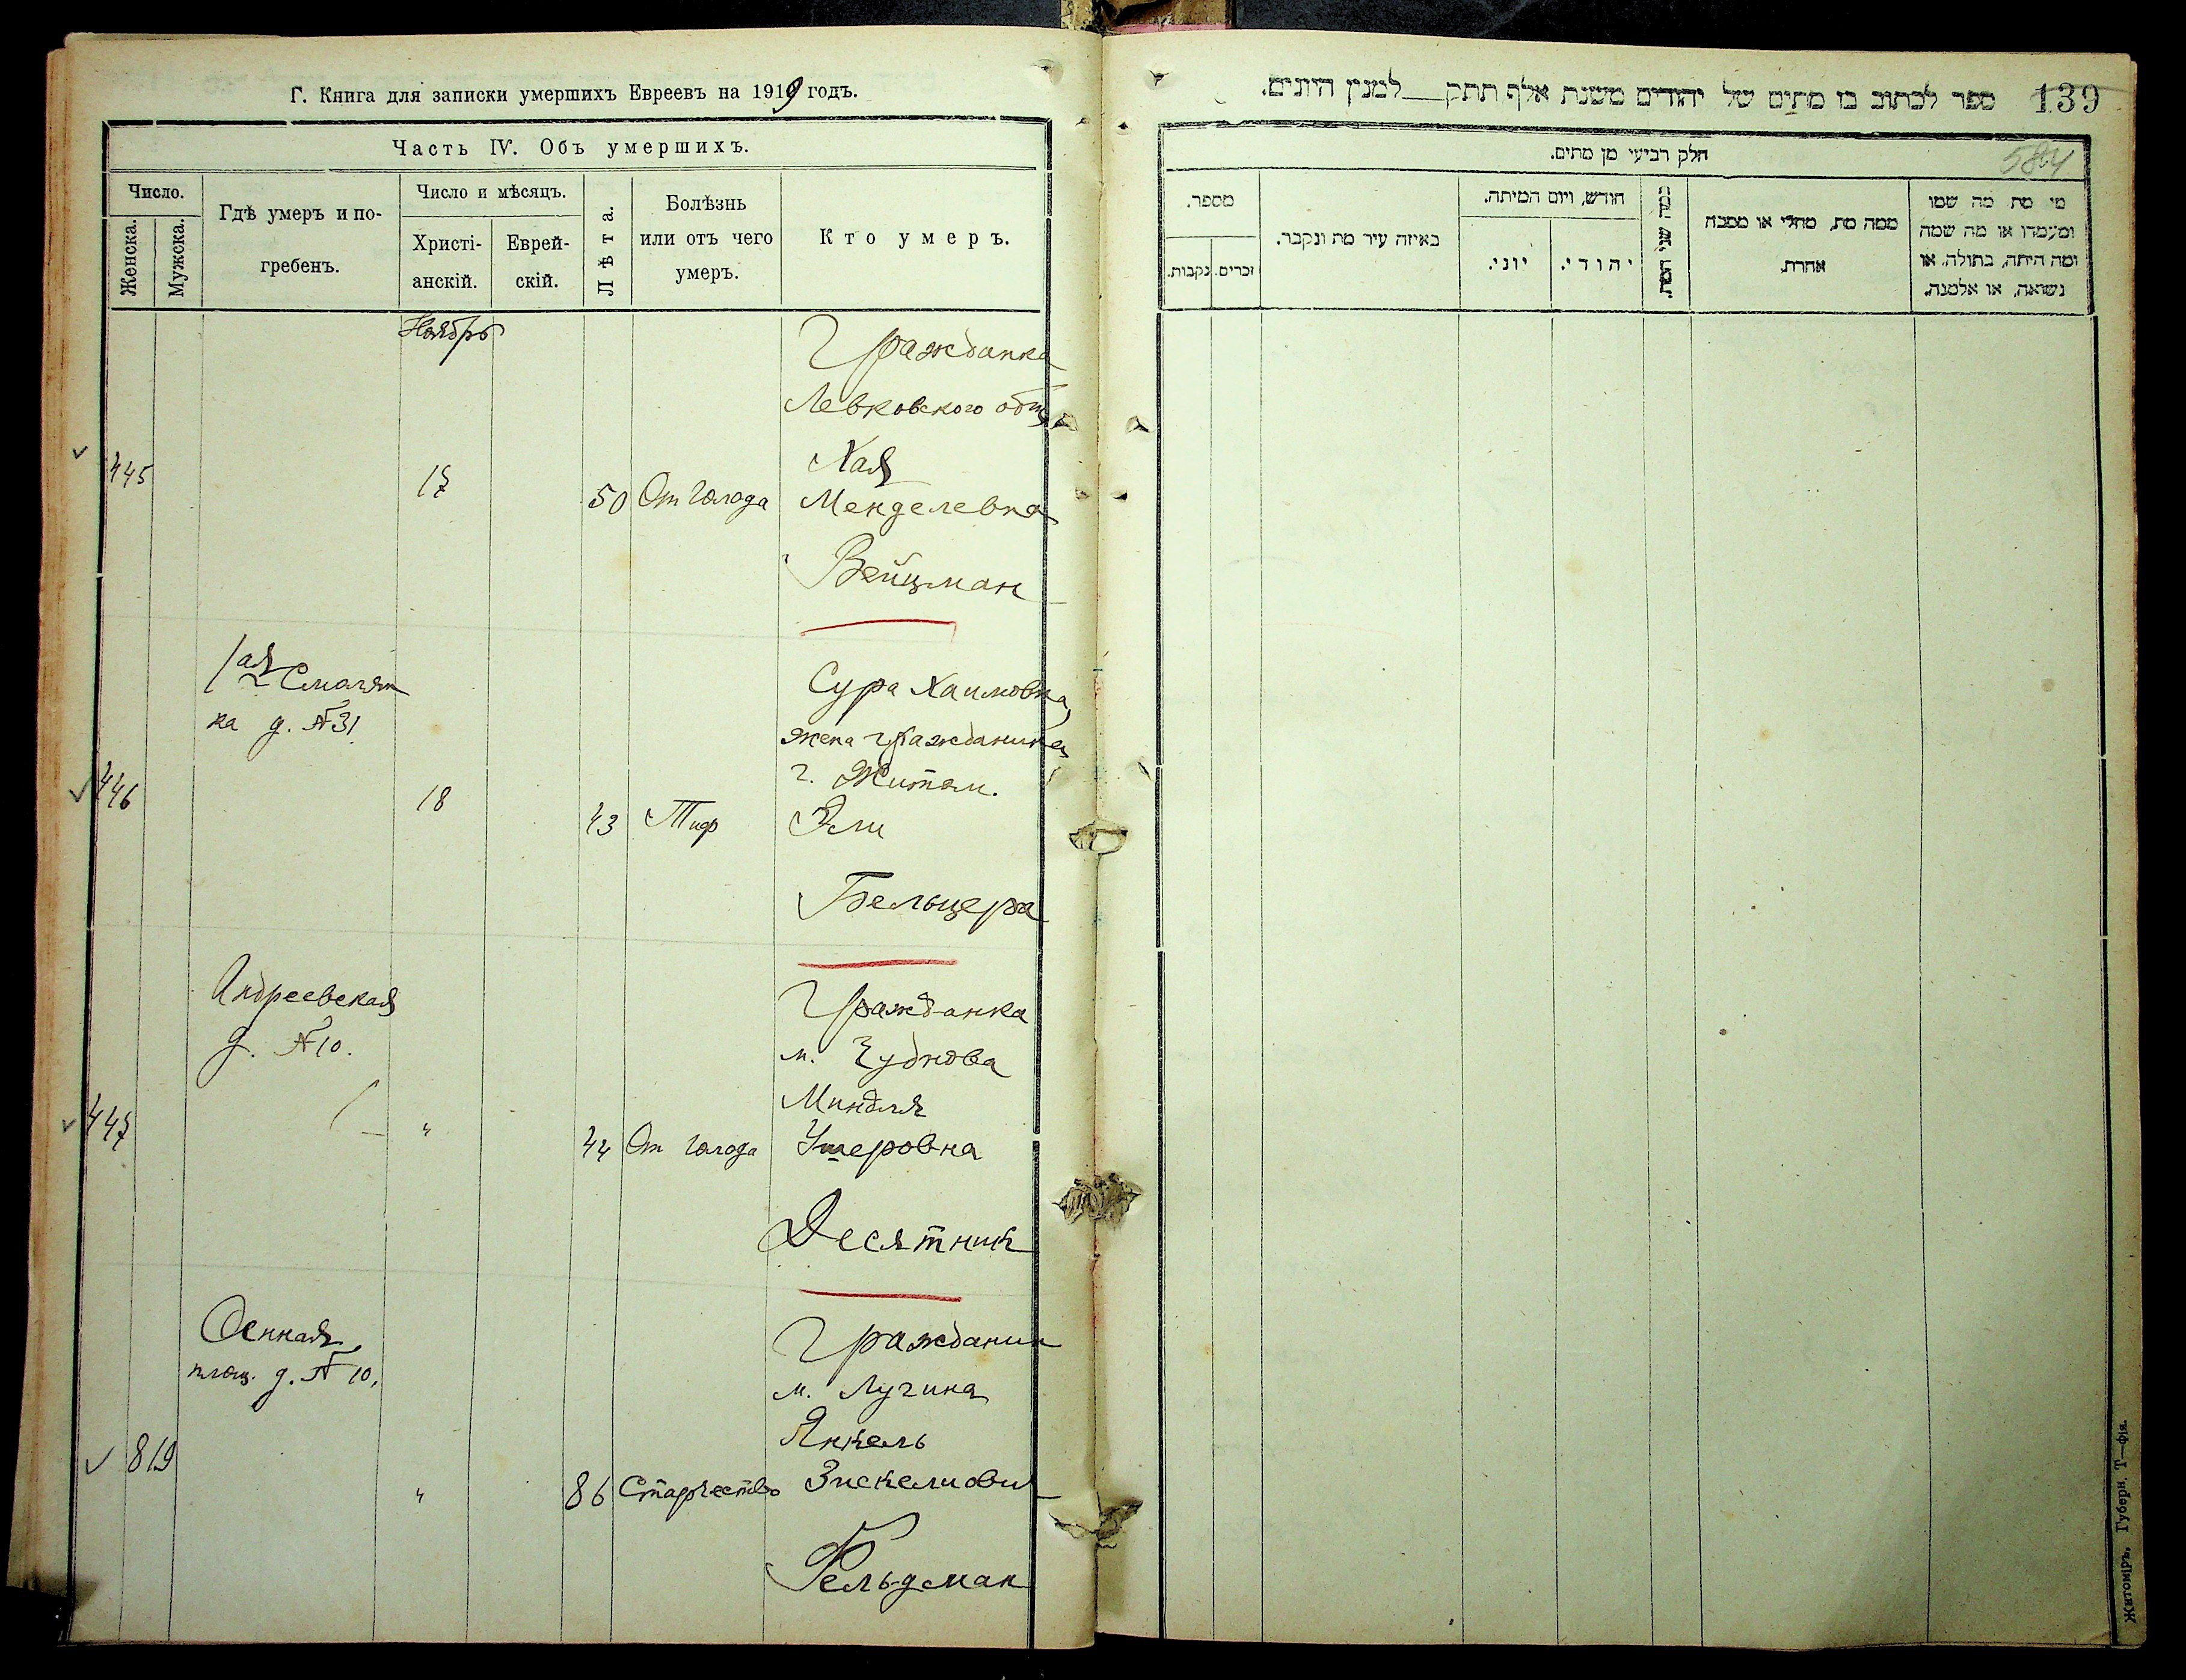 Г. Книга для записки умершихъ Евреевъ на 1919 годъ.
Часть IV. Объ умершихъ.
Число.
Женска.
Мужска.
Гдѣ умеръ и по-
гребенъ.
Число и мѣсяцъ.
Христі-
анскій.
Еврей-
скій.
Лѣта.
Болѣзнь
или отъ чего
умеръ.
Кто умеръ.
Ноябрь
Гражданка
Левковского общ
Хая
445
17
50
От голода
Менделевна
Вейцман
1ая Смолян
ка д. №31
Сура Хаимовна
жена гражданина
г. Житом.
446
18
43
Тиф
Эли
Бельцера
Андреевская
д. №10.
Гражданка
м. Чуднова
Миндля
447
"
44
От голода
Ушеровна
Десятник
Сенная
площ. д. № 10.
Гражданин
м. Лугина
Янкель
819
"
86
Старчество
Зискелиович
Фельдман
ספר לכתוב בו מתים של יהודים משנת אלף תתק__ למנין היונים.
139
חלק רביעי מן מתים.
584
מספר.
זכרים.
נקבות.
באיזה עיר מת ונקבר.
חודש, ויום המיתה.
יוני.
יהודי.
כמה שני המת.
ממה מת, מחלי או מסבה
אחרת.
מי מת מה שמו
ומעמדו או מה שמה
ומה היתה, בתולה, או
נשואה, או אלמנה.
Житоміръ, Губерн. Т—фія.